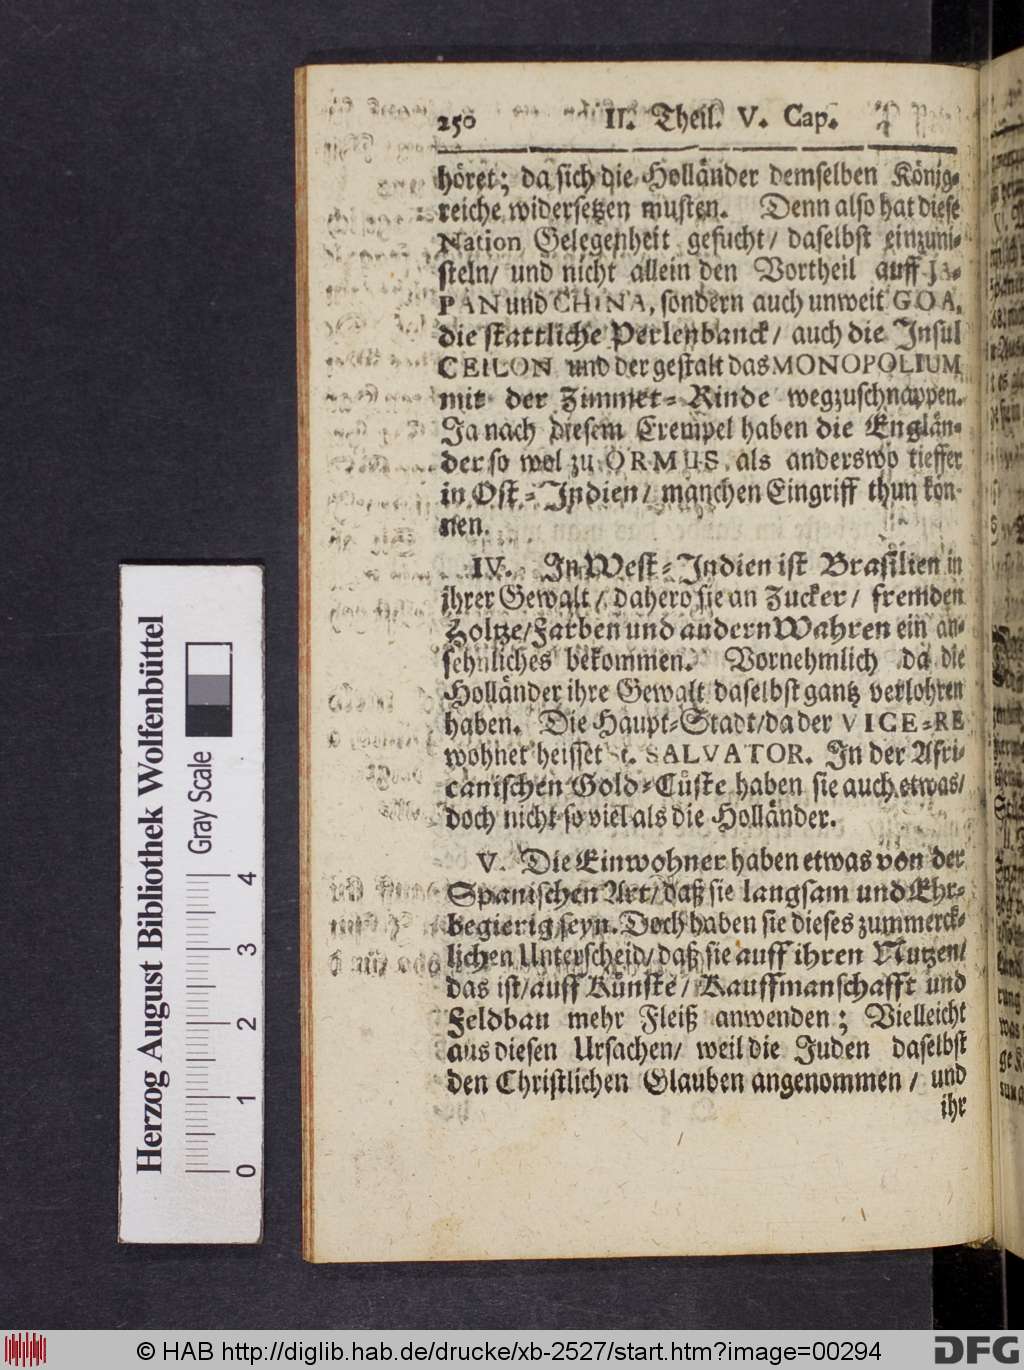 250 II. Theil. V. Cap.
höret; da sich die Holländer demselben König-
reiche widersetzen musten. Denn also hat diese
Nation Gelegenheit gesucht/ daselbst einzuni-
steln/ und nicht allein den Vortheil auff JA-
PAN und CHINA, sondern auch unweit GOA,
die stattliche Perlenbanck/ auch die Insul
CEILON und der gestalt das MONOPOLIUM
mit der Zimmet-Rinde wegzuschnappen.
Ja nach diesem Exempel haben die Englän-
der so wol zu ORMUS, als anderswo tieffer
in Ost-Indien/ manchen Eingriff thun kön-
nen.
IV. In West-Indien ist Brasilien in
ihrer Gewalt/ dahero sie an Zucker/ fremden
Holtze/ Farben und andern Wahren ein an-
sehnliches bekommen. Vornehmlich da die
Holländer ihre Gewalt daselbst gantz verlohren
haben. Die Haupt-Stadt/ da der VICE-RE
wohnet heisset St. SALVATOR. In der Afri-
canischen Gold-Cüste haben sie auch etwas/
doch nicht so viel als die Holländer.
V. Die Einwohner haben etwas von der
Spanischen Art/ daß sie langsam und Ehr-
begierig seyn. Doch haben sie dieses zum merck-
lichen Unterscheid/ daß sie auff ihren Nutzen/
das ist/ auff Künste/ Kauffmanschafft und
Feldbau mehr Fleiß anwenden; Vielleicht
aus diesen Ursachen/ weil die Juden daselbst
den Christlichen Glauben angenommen/ und
ihr
Herzog August Bibliothek Wolfenbüttel
Gray Scale
0 1 2 3 4
© HAB http://diglib.hab.de/drucke/xb-2527/start.htm?image=00294
DFG